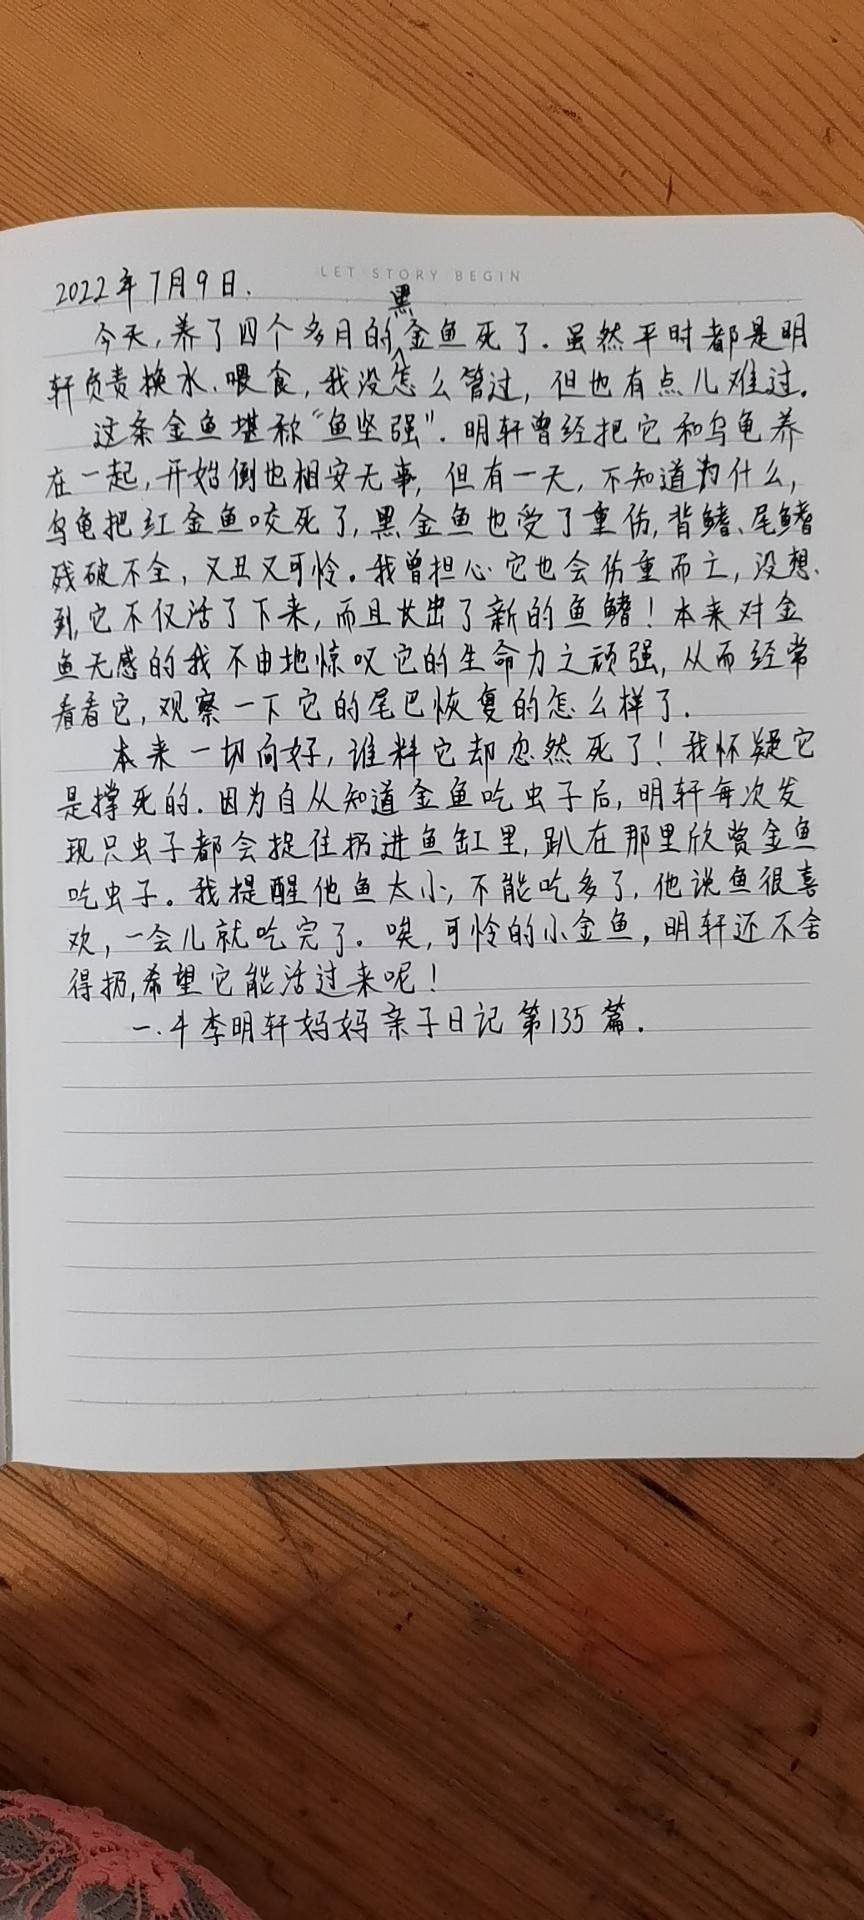 LET STORY BEGIN
2022年7月9日.
今天,养了四个多月的黑金鱼死了.虽然平时都是明
轩负责换水、喂食,我没怎么管过,但也有点儿难过.
这条金鱼堪称“鱼坚强”.明轩曾经把它和乌龟养
在一起,开始倒也相安无事,但有一天,不知道为什么,
乌龟把红金鱼咬死了,黑金鱼也受了重伤,背鳍、尾鳍
残破不全,又丑又可怜。我曾担心它也会伤重而亡,没想
到,它不仅活了下来,而且长出了新的鱼鳍!本来对金
鱼无感的我不由地惊叹它的生命力之顽强,从而经常
看看它,观察一下它的尾巴恢复的怎么样了.
本来一切向好,谁料它却忽然死了!我怀疑它
是撑死的.因为自从知道金鱼吃虫子后,明轩每次发
现只虫子都会捉住扔进鱼缸里,趴在那里欣赏金鱼
吃虫子。我提醒他鱼太小,不能吃多了,他说鱼很喜
欢,一会儿就吃完了。唉,可怜的小金鱼,明轩还不舍
得扔,希望它能活过来呢!
一.4李明轩妈妈亲子日记第135篇.